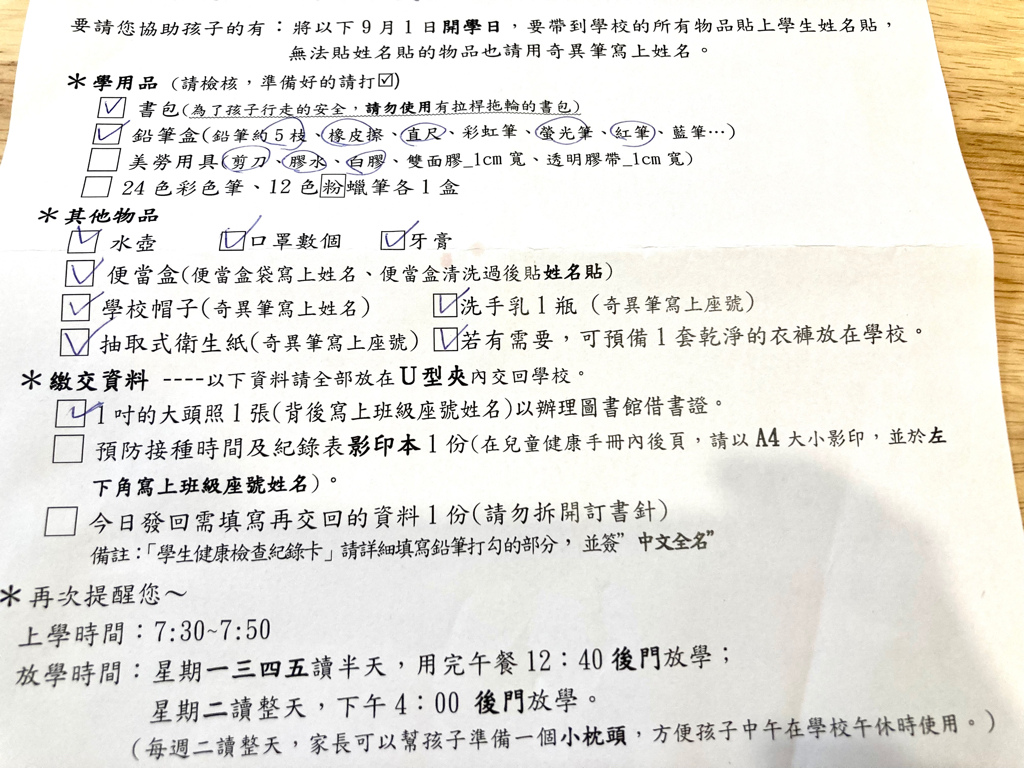 要請您協助孩子的有：將以下9月1日開學日，要帶到學校的所有物品貼上學生姓名貼，
無法貼姓名貼的物品也請用奇異筆寫上姓名。
＊學用品（請檢核，準備好的請打☑）
☑ 書包（為了孩子行走的安全，請勿使用有拉桿拖輪的書包）
☑ 鉛筆盒（鉛筆約5枝、橡皮擦、直尺、彩虹筆、螢光筆、紅筆、藍筆…）
□ 美勞用具（剪刀、膠水、白膠、雙面膠_1cm寬、透明膠帶_1cm寬）
□ 24色彩色筆、12色粉蠟筆各1盒
＊其他物品
☑ 水壺 ☑口罩數個 ☑牙膏
☑ 便當盒（便當盒袋寫上姓名、便當盒清洗過後貼姓名貼）
☑ 學校帽子（奇異筆寫上姓名） ☑洗手乳1瓶（奇異筆寫上座號）
☑ 抽取式衛生紙（奇異筆寫上座號） ☑若有需要，可預備1套乾淨的衣褲放在學校。
＊繳交資料 ----以下資料請全部放在U型夾內交回學校。
☑ 1吋的大頭照1張（背後寫上班級座號姓名）以辦理圖書館借書證。
□ 預防接種時間及紀錄表影印本1份（在兒童健康手冊內後頁，請以A4大小影印，並於左
下角寫上班級座號姓名）。
□ 今日發回需填寫再交回的資料1份（請勿拆開訂書針）
備註：「學生健康檢查紀錄卡」請詳細填寫鉛筆打勾的部分，並簽”中文全名”
＊再次提醒您～
上學時間：7:30~7:50
放學時間：星期一三四五讀半天，用完午餐12：40後門放學；
星期二讀整天，下午4：00 後門放學。
（每週二讀整天，家長可以幫孩子準備一個小枕頭，方便孩子中午在學校午休時使用。）